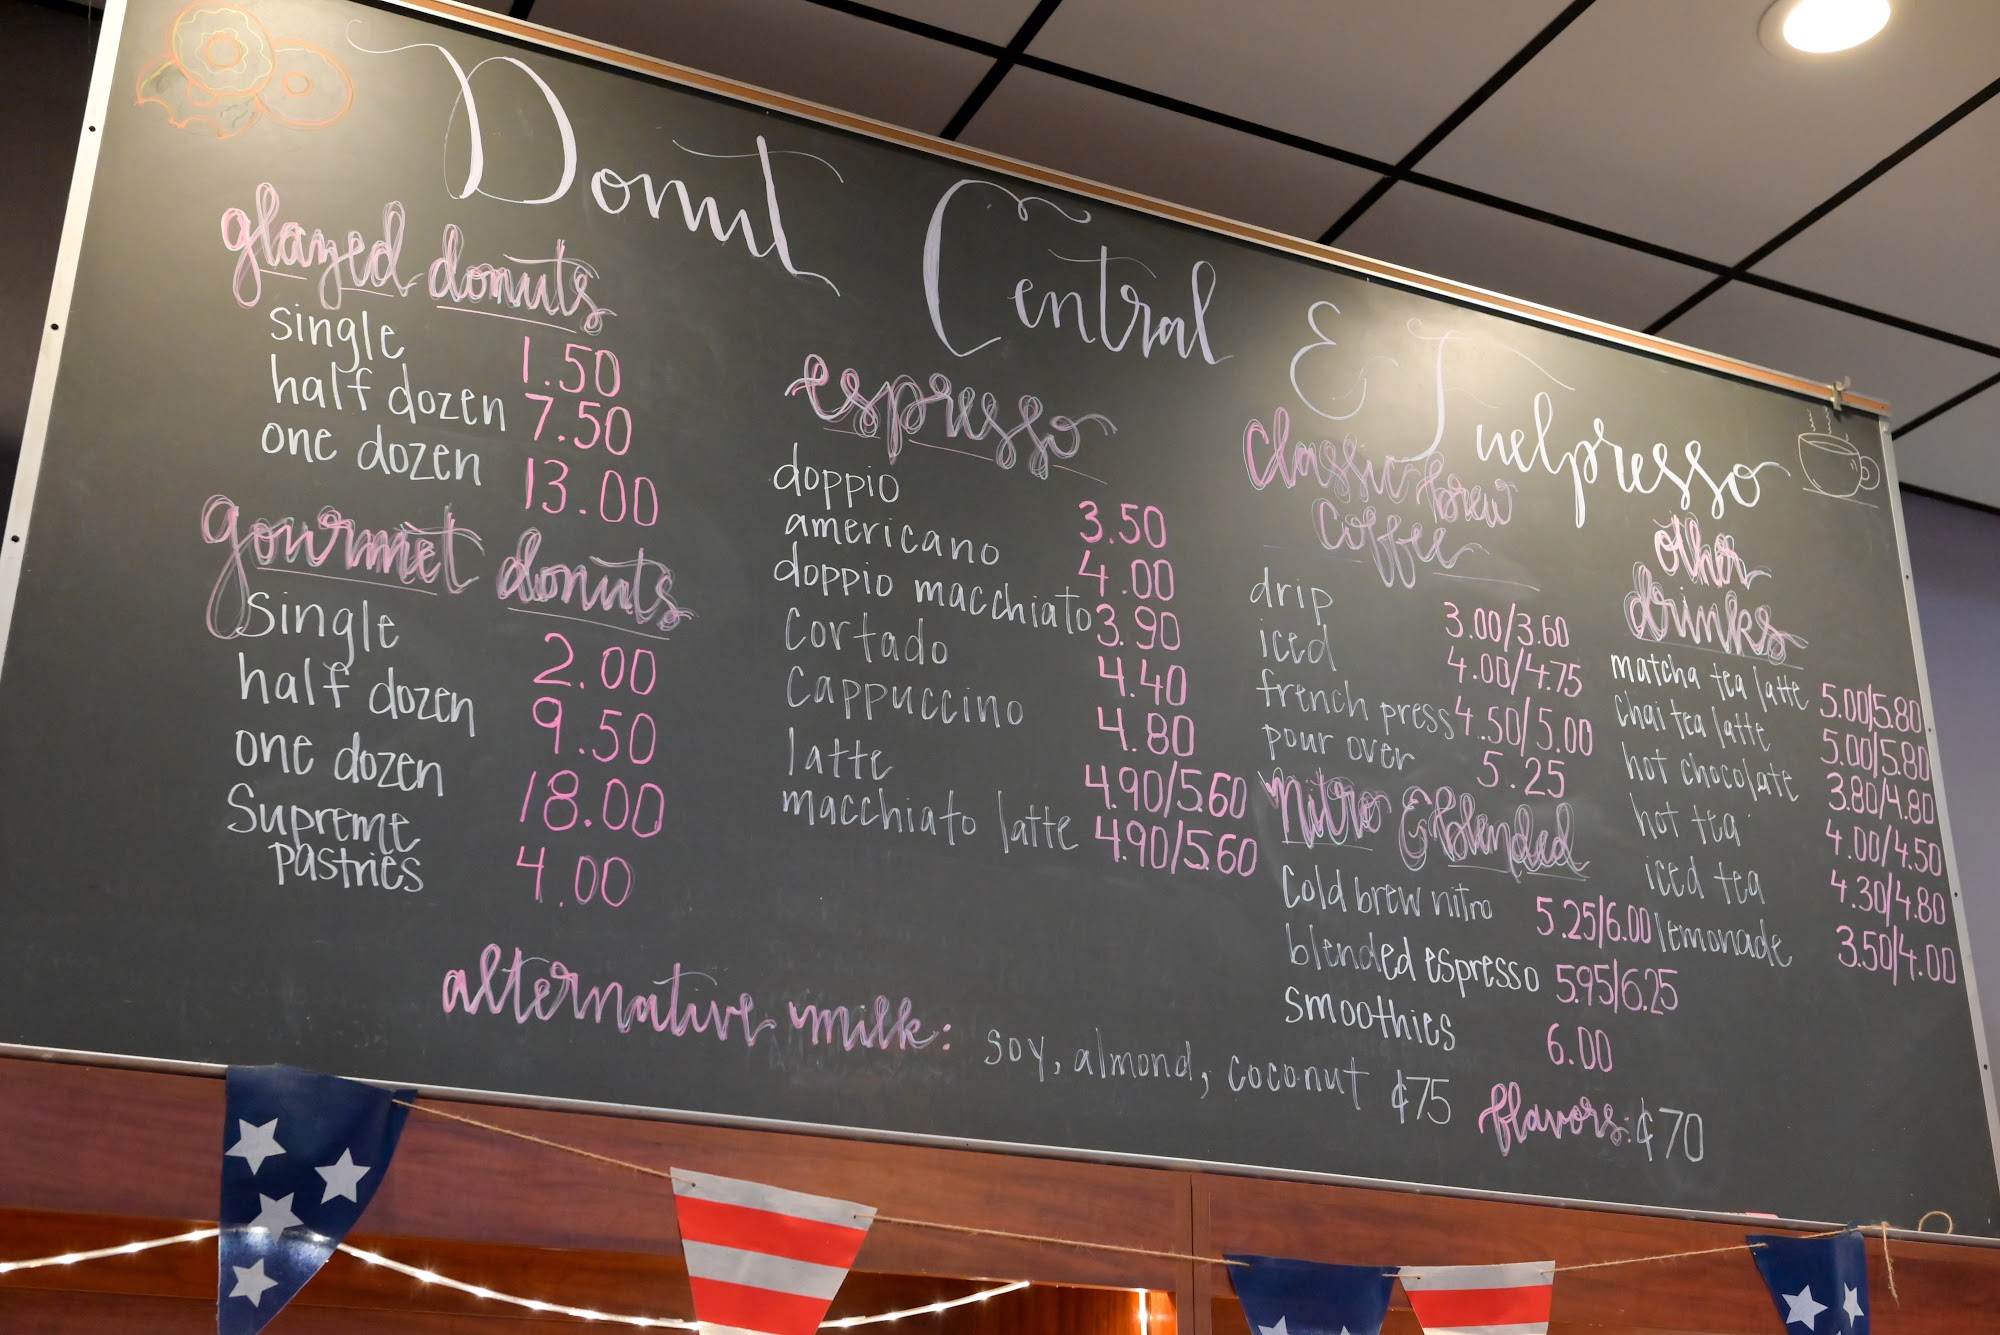 Donut Central & Fuelpresso
glazed donuts
single 1.50
half dozen 7.50
one dozen 13.00
gourmet donuts
single 2.00
half dozen 9.50
one dozen 18.00
Supreme
pastries 4.00
espresso
doppio 3.50
americano 4.00
doppio macchiato 3.90
Cortado 4.40
Cappuccino 4.80
latte 4.90/5.60
macchiato latte 4.90/5.60
Classic brew
Coffee
drip 3.00/3.60
iced 4.00/4.75
french press 4.50/5.00
pour over 5.25
Nitro & Blended
Cold brew nitro 5.25/6.00
blended espresso 5.95/6.25
Smoothies 6.00
other
drinks
matcha tea latte 5.00/5.80
chai tea latte 5.00/5.80
hot chocolate 3.80/4.80
hot tea 4.00/4.50
iced tea 4.30/4.80
lemonade 3.50/4.00
alternative milk: soy, almond, coconut ¢75
flavors: ¢70